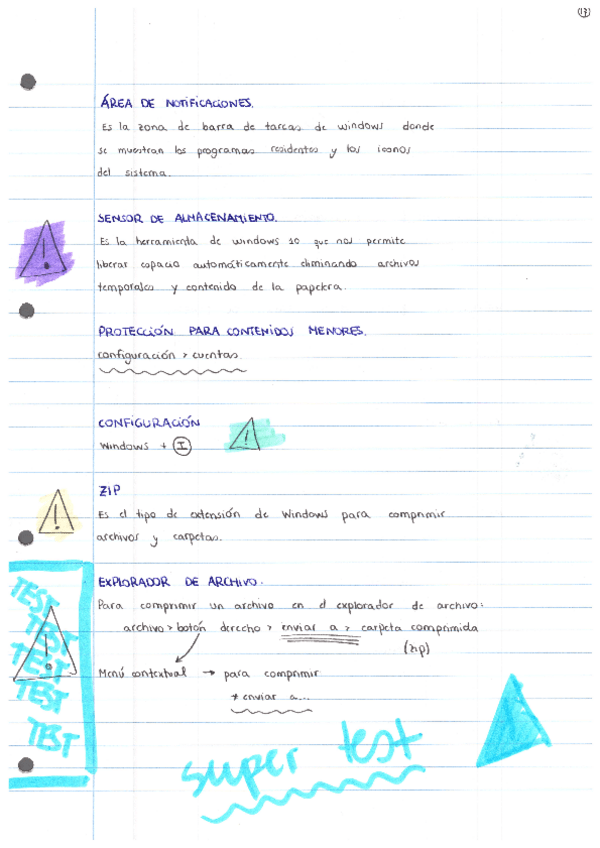 13
ÁREA DE NOTIFICACIONES.
Es la zona de barra de tareas de windows donde
se muestran los programas residentes y los iconos
del sistema.
SENSOR DE ALMACENAMIENTO.
Es la herramienta de windows 10 que nos permite
liberar espacio automáticamente eliminando archivos
temporales y contenido de la papelera.
PROTECCIÓN PARA CONTENIDOS MENORES.
configuración > cuentas.
CONFIGURACIÓN
Windows + I
ZIP
Es el tipo de extensión de Windows para comprimir
archivos y carpetas.
EXPLORADOR DE ARCHIVO.
Para comprimir un archivo en el explorador de archivo:
archivo > botón derecho > enviar a > carpeta comprimida
(zip)
Menú contextual → para comprimir
* enviar a...
TEST
TEST
TEST
TEST
TEST
super test